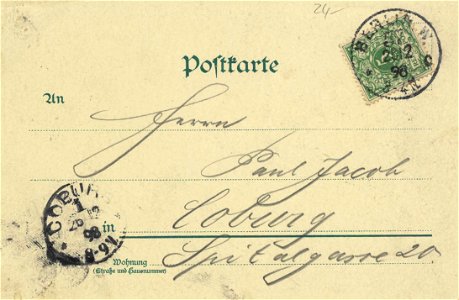 24-
BERLIN W.
98
Postkarte
An
Herrn
Paul Jacob
Coburg
in
Spitalgasse 20
Wohnung
(Straße und Hausnummer)
COBURG
1
26
98
8-9V.